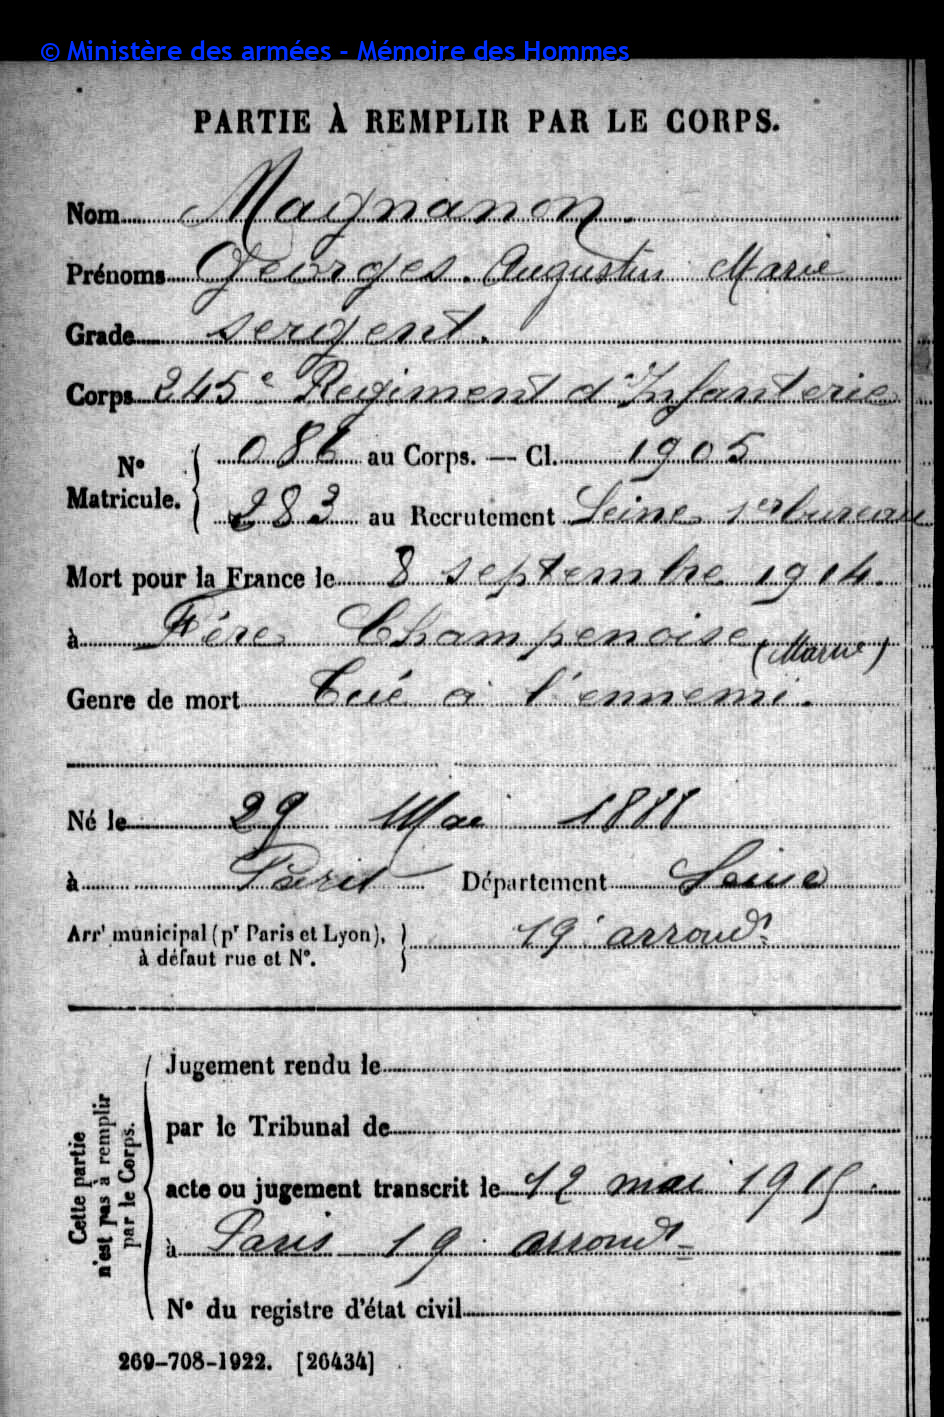 © Ministère des armées - Mémoire des Hommes
PARTIE À REMPLIR PAR LE CORPS.
Nom Magnanon.
Prénoms Georges. Augustin Marie
Grade sergent.
Corps 245e Regiment d'Infanterie
N° Matricule. 086 au Corps. — Cl. 1905
283 au Recrutement Seine 1er bureau
Mort pour la France le 8 septembre 1914.
à Fére Champenoise (Marne)
Genre de mort Tué à l'ennemi.
Né le 29 Mai 1888
à Paris Département Seine
Arrt municipal (pr Paris et Lyon), à défaut rue et N°. 19e arrondt
Cette partie n'est pas à remplir par le Corps.
Jugement rendu le
par le Tribunal de
acte ou jugement transcrit le 12 mai 1915.
à Paris 19 arrondt
N° du registre d'état civil
269-708-1922. [26434]